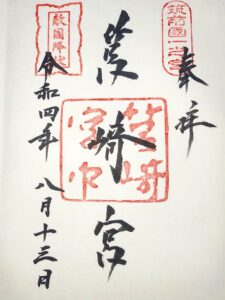 奉拝
筑前國一之宮
筥崎宮
筥崎宮印
敵國降伏
令和四年 八月十三日